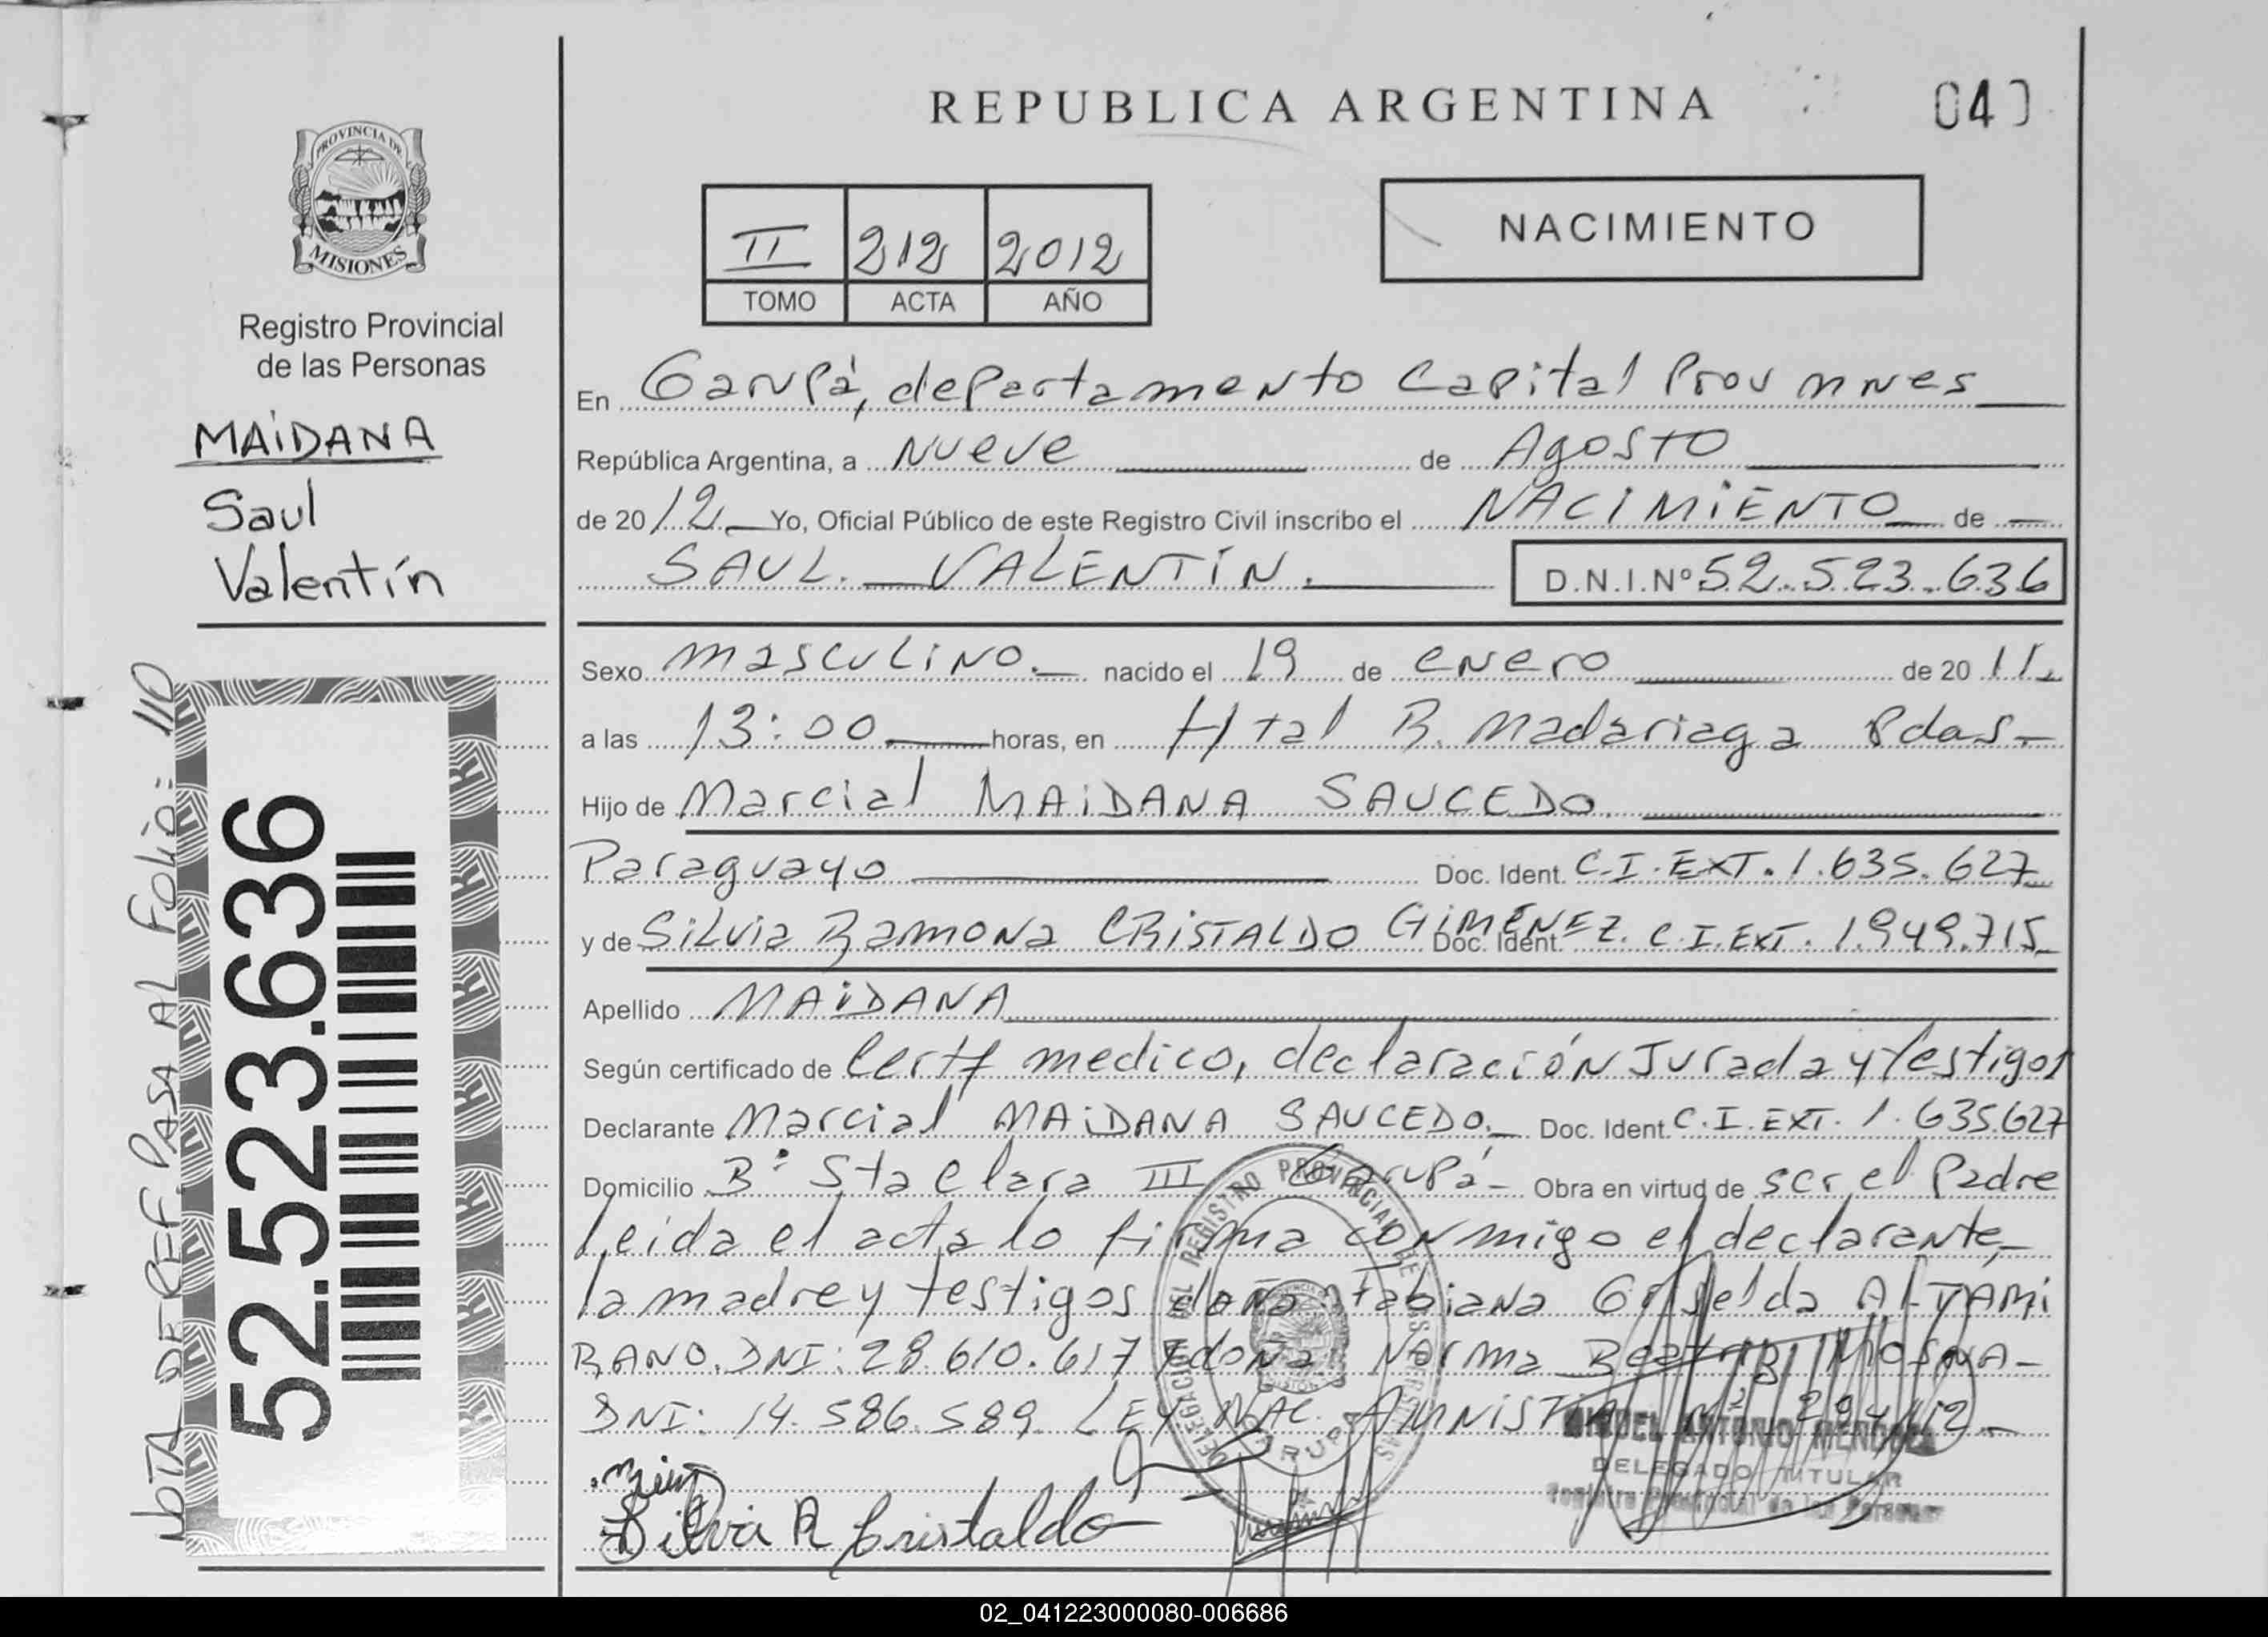 REPUBLICA ARGENTINA
04
PROVINCIA DE
MISIONES
Registro Provincial
de las Personas
MAiDANA
Saul
Valentín
II 212 2012
TOMO ACTA AÑO
NACIMIENTO
En Garupá, departamento Capital Prov mnes
República Argentina, a Nueve de Agosto
de 2012 Yo, Oficial Público de este Registro Civil inscribo el NACIMIENTO de
SAUL. VALENTIN. D.N.I.Nº 52.523.636
Sexo masculino. nacido el 19 de enero de 2011.
a las 13:00 horas, en Htal R. Madariaga Pdas-
Hijo de Marcial MAiDANA SAUCEDO.
Paraguayo Doc. Ident. C.I.EXT. 1.635.627
y de Silvia Ramona CRiSTALDO GiMENEZ. Doc. Ident. C.I.EXT. 1.949.715
Apellido MAiDANA
Según certificado de Certf medico, declaración Jurada y testigos
Declarante Marcial MAiDANA SAUCEDO. Doc. Ident. C.I.EXT. 1.635.627
Domicilio Bº Sta Clara III Garupá- Obra en virtud de ser el Padre
Leida el acta lo firma conmigo el declarante,
la madre y testigos doña Fabiana Griselda ALTAMi
RANO. DNI: 28.610.617 y doña Norma Beatriz
DNI: 14.586.589. LEY NAC. AMNISTIA Nº 294/12.-
Silvia R Cristaldo
DELEGACION DEL REGISTRO PROVINCIAL DE LAS PERSONAS
GARUPA
MIGUEL ANTONIO MENDOZA
DELEGADO TITULAR
Registro Provincial de las Personas
NOTA DE REF. PASA AL FOLIO: 110
52.523.636
02_041223000080-006686